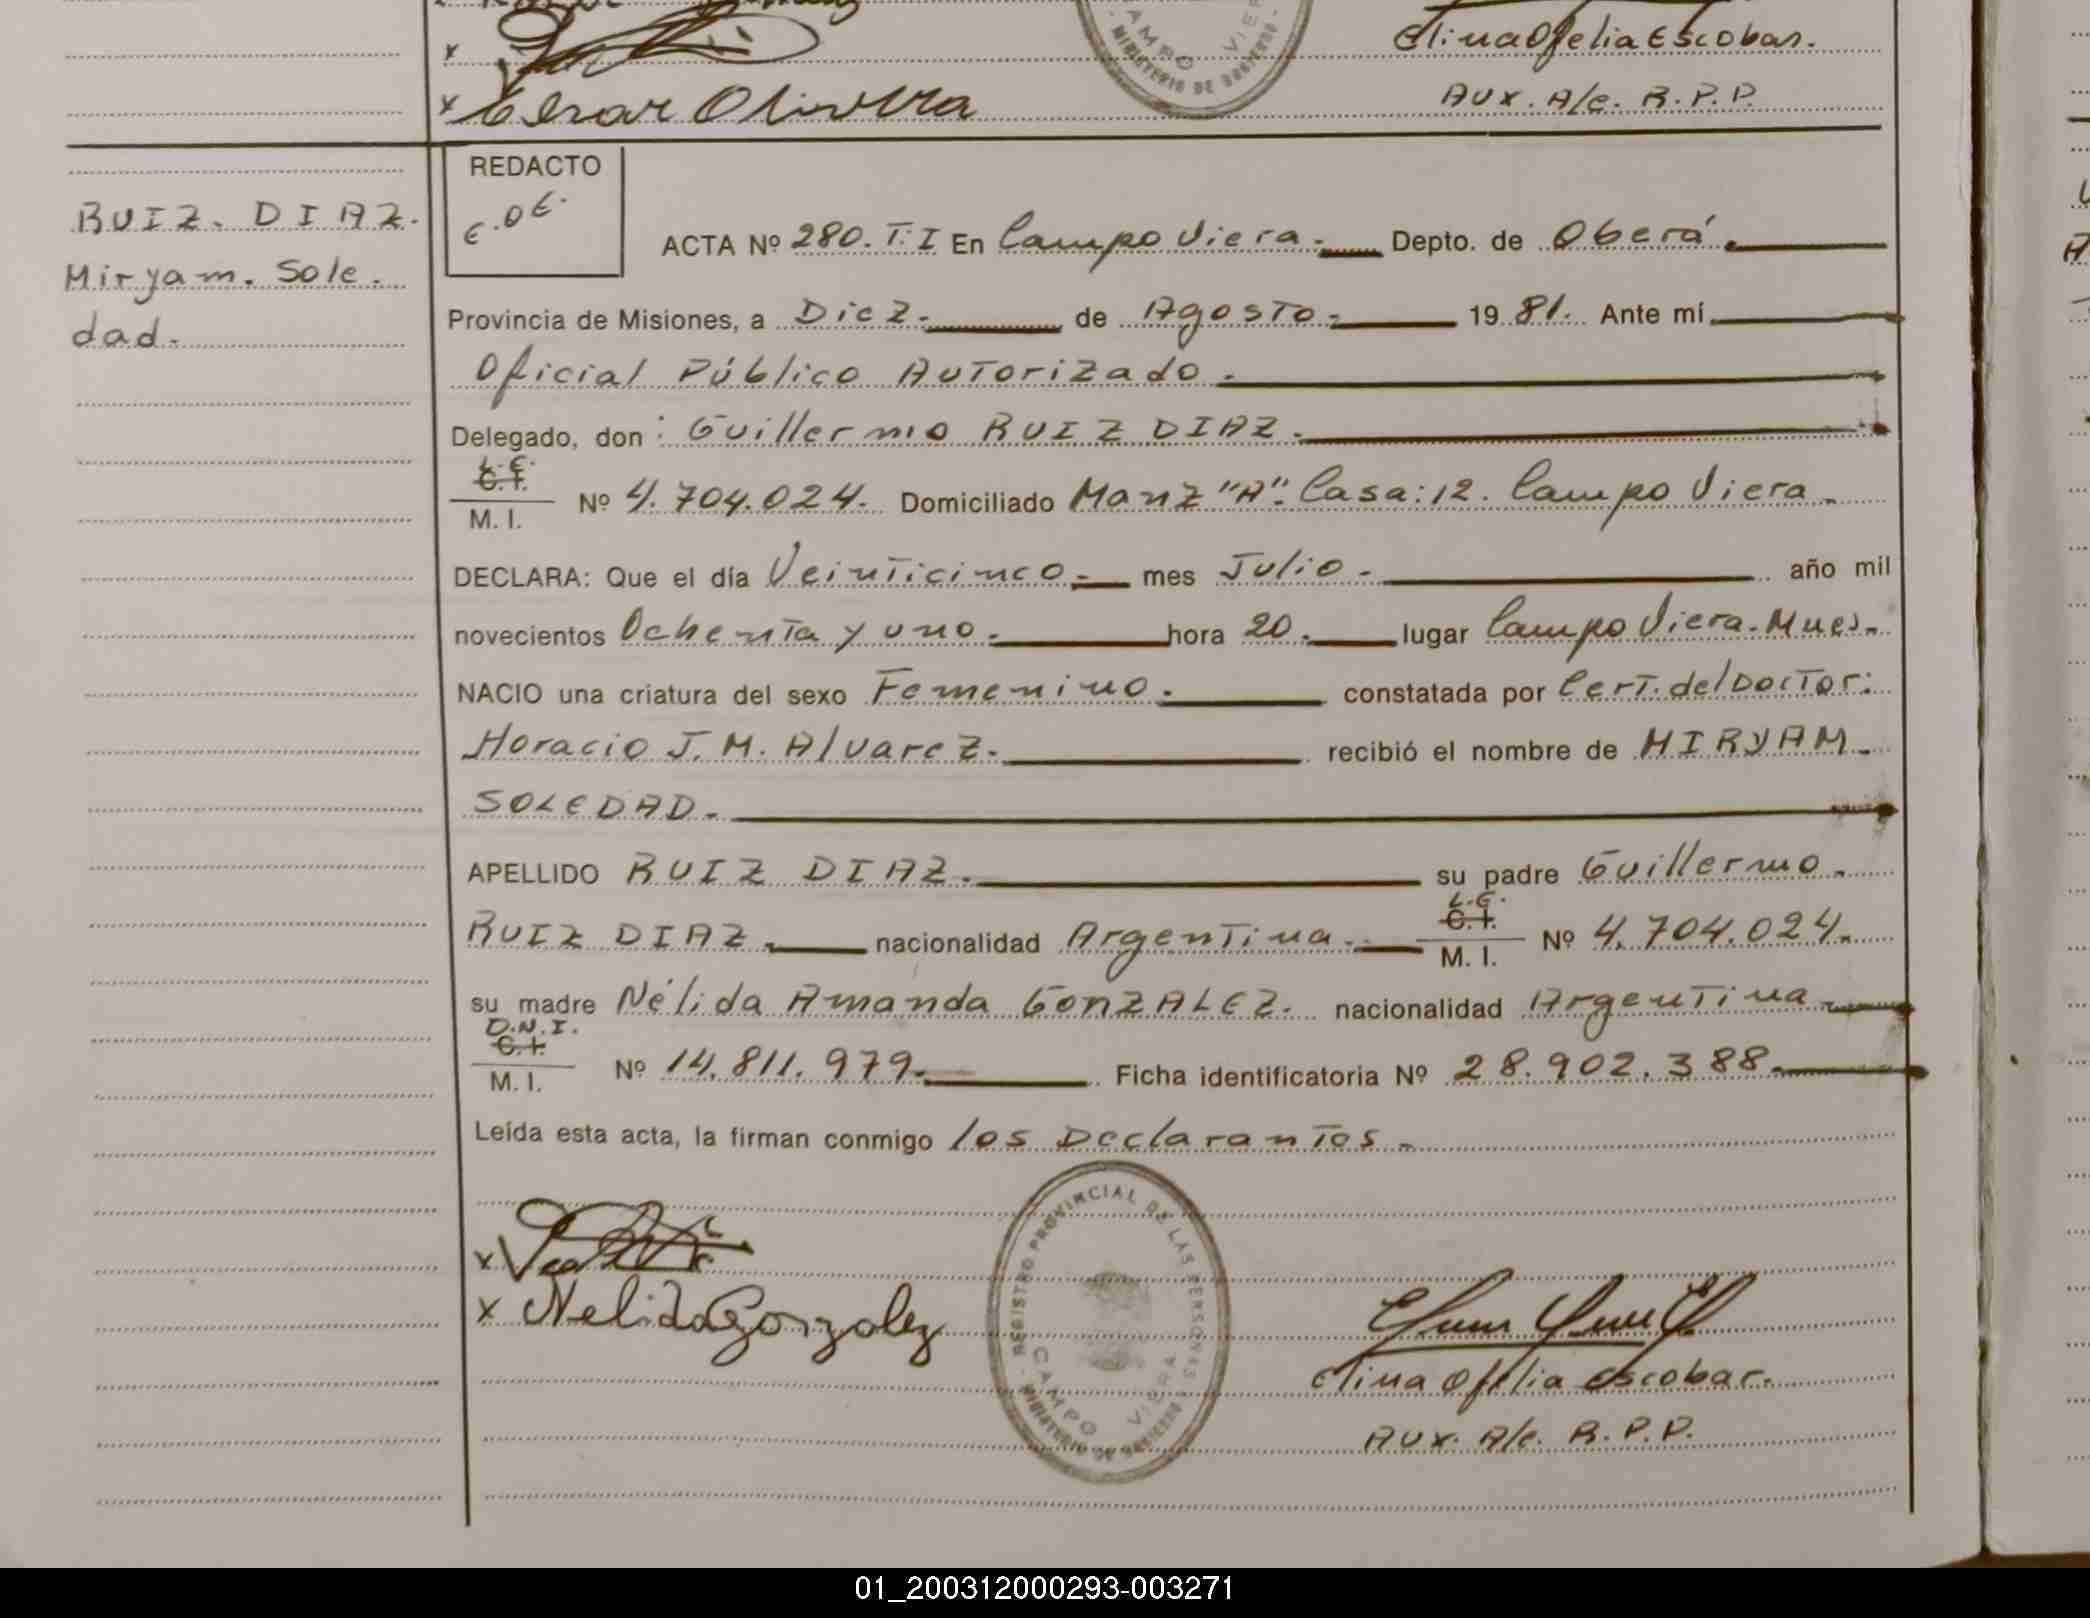 Elina Ofelia Escobar.
x
x Cesar Olivera
AUX. A/c. R.P.P.
CAMPO VIERA
MINISTERIO DE GOBIERNO
RUIZ. DIAZ.
Miryam. Sole.
dad.
REDACTO
E.O.E.
ACTA Nº 280. T. I En Campo Viera.- Depto. de Oberá.
Provincia de Misiones, a Diez.- de Agosto.- 19 81. Ante mí
Oficial Público Autorizado.
Delegado, don: Guillermo RUIZ DIAZ.
L.E.
C.I.
M. I. Nº 4.704.024. Domiciliado Manz "A". Casa: 12. Campo Viera.
DECLARA: Que el día Veinticinco.- mes Julio.- año mil
novecientos Ochenta y uno.- hora 20.- lugar Campo Viera. Mnes.
NACIO una criatura del sexo Femenino.- constatada por Cert. del Doctor:
Horacio J. M. Alvarez.- recibió el nombre de MIRYAM
SOLEDAD.-
APELLIDO RUIZ DIAZ.- su padre Guillermo
RUIZ DIAZ.- nacionalidad Argentina.- L.E. C.I. M. I. Nº 4.704.024.
su madre Nélida Amanda GonZALEZ. nacionalidad Argentina
D.N.I.
C.I.
M. I. Nº 14.811.979.- Ficha identificatoria Nº 28.902.388.
Leída esta acta, la firman conmigo los Declarantes.-
x
x Nelida Gonzalez
REGISTRO PROVINCIAL DE LAS PERSONAS
CAMPO VIERA
MINISTERIO DE GOBIERNO
Elina Ofelia Escobar.
AUX. A/c. R.P.P.
01_200312000293-003271